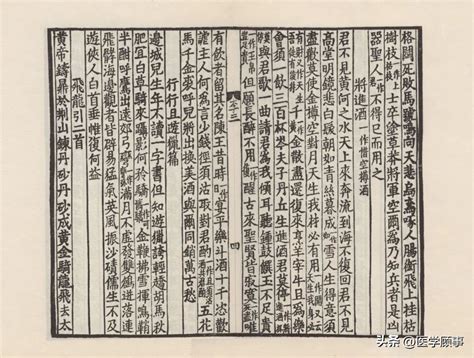 格鬬死敗馬號鳴向天悲烏鳶啄人腸銜飛上枯
樹枝士卒塗草莽將軍空爾為乃知兵者是凶
器聖人一作君不得已而用之
將進酒一作惜空樽酒
君不見黃河之水天上來奔流到海不復回君不見
高堂明鏡悲白髮朝如青絲暮成雪人生得意須
盡歡莫使金樽空對月天生我材必有用
千金散盡還復來烹羊宰牛且為樂
會須一飲三百杯岑夫子丹丘生進酒君莫停
與君歌一曲請君為我傾耳聽鍾鼓饌玉不足貴
但願長醉不用醒古來聖賢皆寂寞惟
有飲者留其名陳王昔時宴平樂斗酒十千恣歡
謔主人何為言少錢徑須沽取對君酌五花
馬千金裘呼兒將出換美酒與爾同銷萬古愁
行行且遊獵篇
邊城兒生年不讀一字書但知遊獵誇輕趫胡馬秋
肥宜白草騎來躡影何矜驕金鞭拂雪揮鳴鞘
半酣呼鷹出遠郊弓彎滿月不虛發雙鶬迸落連
飛髇海邊觀者皆辟易猛氣英風振沙磧儒生不及
遊俠人白首垂帷復何益
飛龍引二首
黃帝鑄鼎於荆山鍊丹砂丹砂成黃金騎龍飛去太
头条 @医学顾事